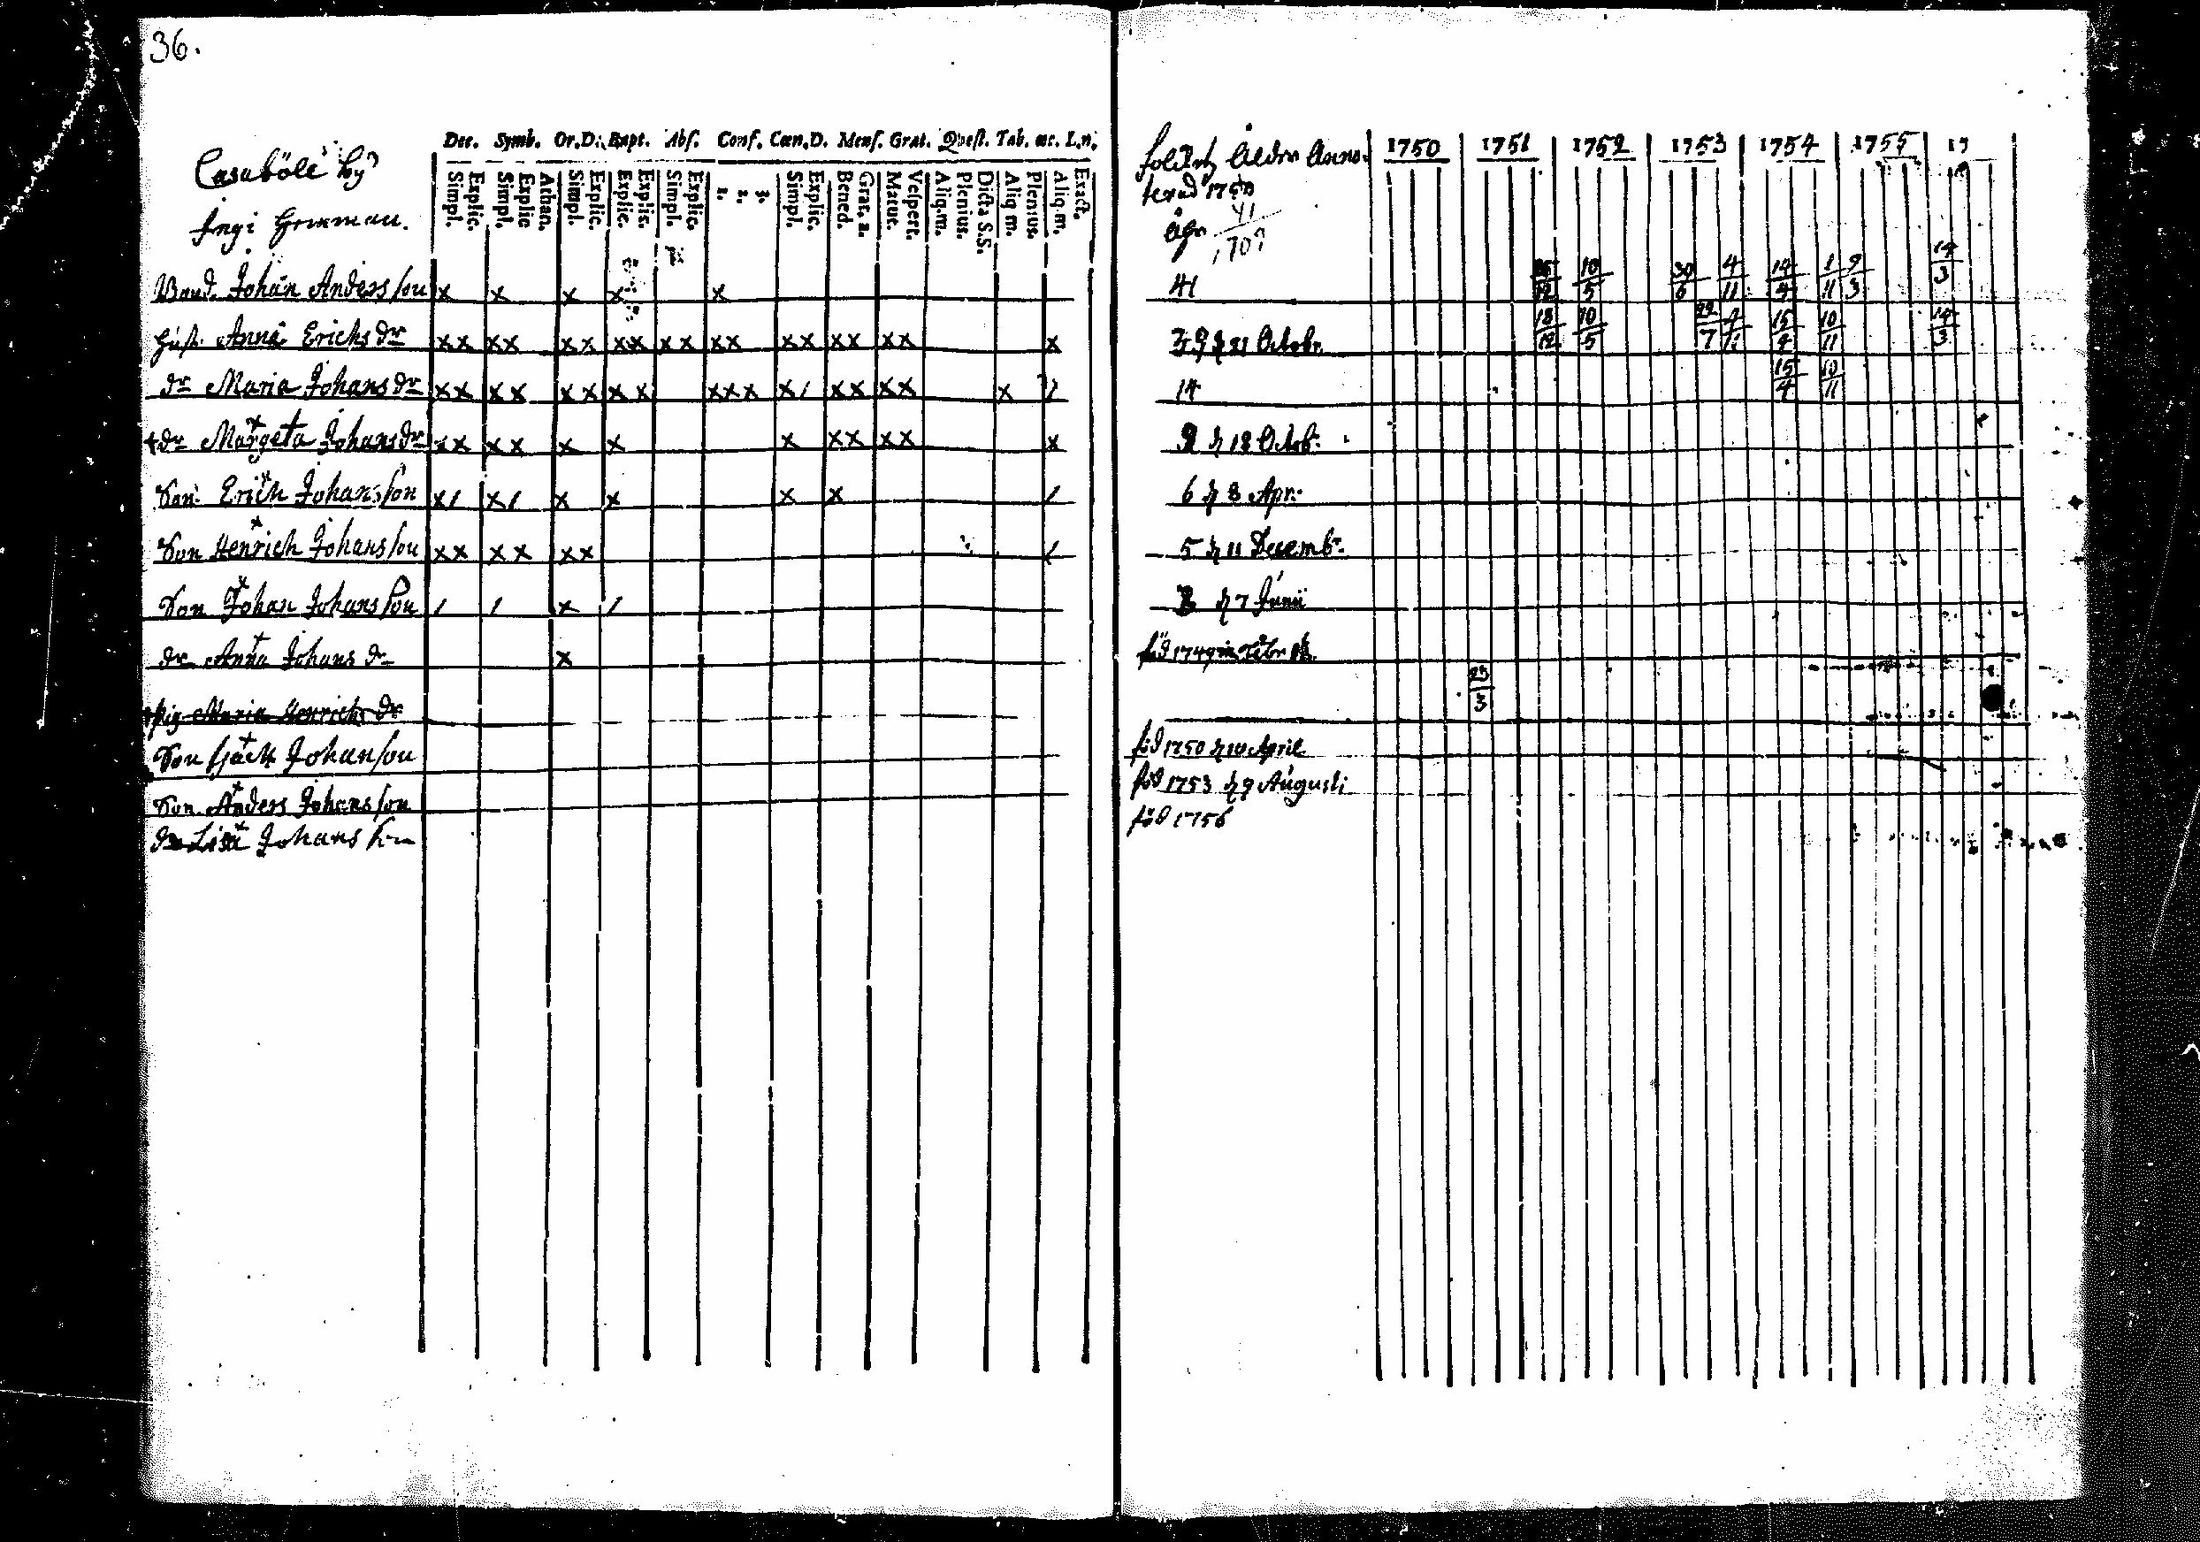 36.
Casaböle by
Ingi
Dec. Symb. Or.D. Bapt. Abs. Conf. Cœn.D. Mens. Grat. Qvest. Tab. œc. L.n.
Explic. Simpl. Explic Simpl. Athan. Explic. Simpl. Explic. Explic. Simpl. 3. 2. 1. Explic. Simpl. Grat. a. Bened. Vespert. Matut. Dicta S.S. Plenius. Aliq.m. Plenius. Aliq m. Exact. Aliq.m.
Bond. Johan Andersson x x x x x
Hust. Anna Erichs dr xx xx xx xx xx xx xx xx xx x
dr Maria Johans dr xx xx xx xx xxx x/ xx xx x
dr Margeta Johans dr xx xx x x x xx xx x
Son Erich Johansson x/ x/ x x x x /
Son Henrich Johansson xx xx xx /
Son Johan Johansson / / x /
dr Anna Johans dr x
pig Maria Henrichs dr
Son Johanson
Son Anders Johansson
dr Lisa Johans
Åldr Anno
1750
41
1707
1750 1751 1752 1753 1754 1755 17
41 10/5 30/6 4/11 14/4 1/11 9/3 14/3
39 d 21 Octobr. 18/12 10/5 22/7 15/4 10/11 14/3
14 15/4 10/11
9 d 12 Octob.
6 d 8 Apr.
5 d 11 Decemb.
d 7 Junii
föd 1749 Febr
23/3
föd 1750 d 10 April
föd 1753 d 9 Augusti
föd 1756